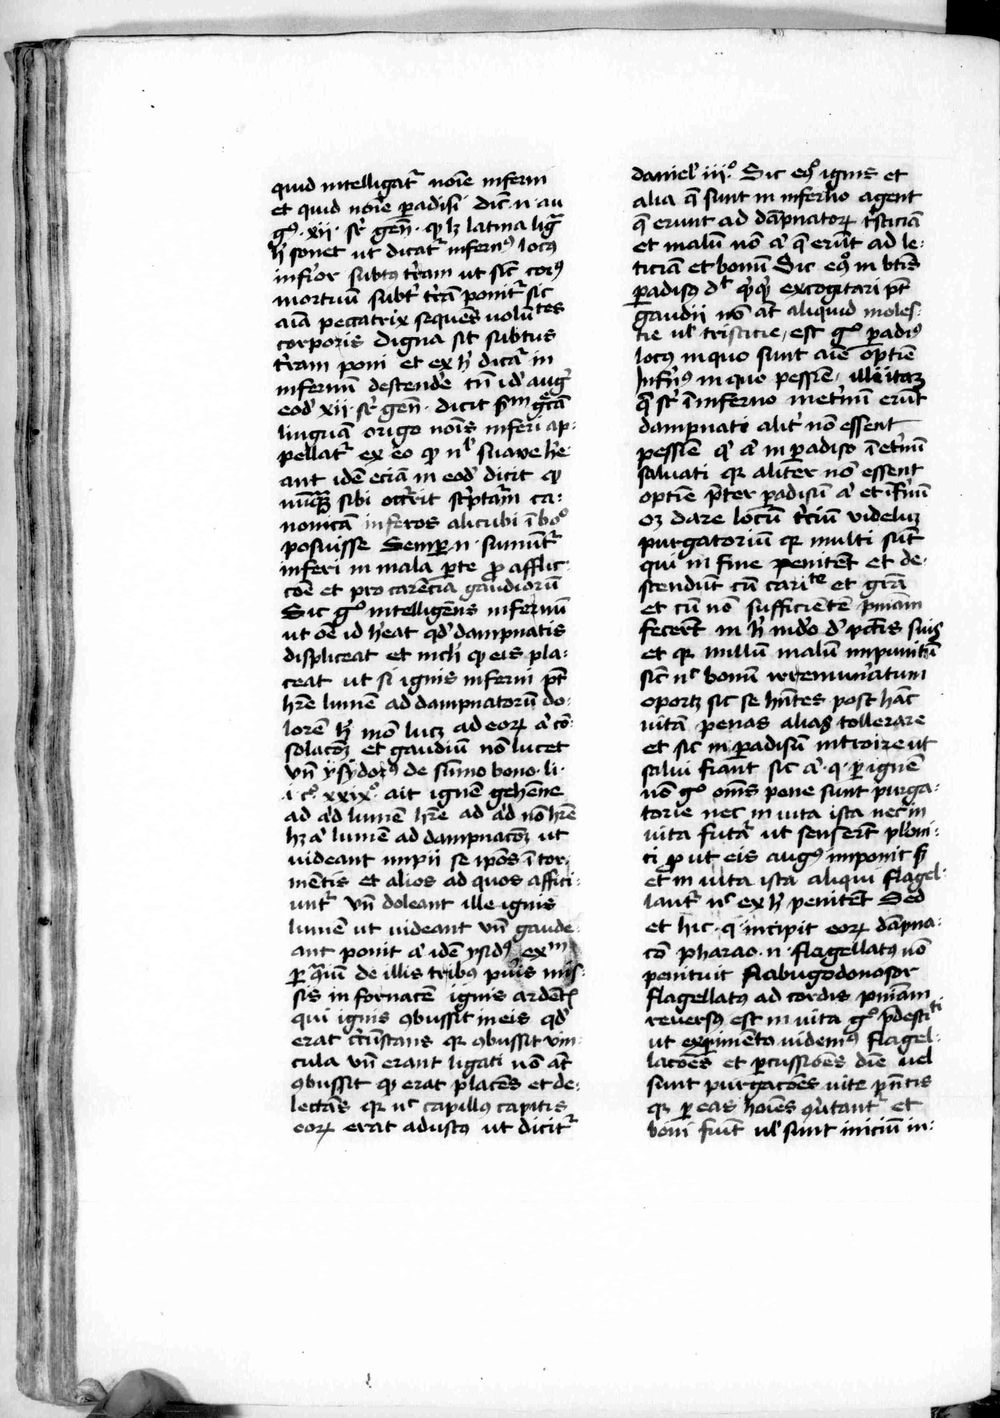 quid intelligat᷑ noīe inferni
et quid noīe ꝑadisi dic̄ .n. au
gꝰ .xii. sr̄ gen̄. ꝙ lꝫ latina liḡ
h̄ sonet ut dicat᷑ infernꝰ locꝰ
infior subtꝰ t̄ram ut sic̄ corꝰ
mortuū subt᷑ t̄rā ponit᷑ sic
aīa peccatrix sequēs volūtes
corporis digna sit subtus
t̄ram poni et ex h̄ dicat᷑ in
infernū descendē tn̄ id᷑ augꝰ
eod᷑ xii. sr̄ gen̄. dicit ẜm gͬcā
linguā origo noīs inferi ap⸗
pellat᷑ ex eo ꝙ nˡ suaue he⸗
ant idē eciā in eod᷑ dicit ꝙ
nūqꝫ sibi occ̄rit sc̄ptam ca⸗
nonicā inferos alicubi ī boº
posuisse Semꝑ .n. sumūt᷑
inferi in mala ꝑte ꝓ afflic⸗
cōe et pro carēcia gaudiorū
Sic gº intelligēns infernū
ut oē id heat qd᷑ dampnatis
displiceat et nichˡ ꝙ eis pla⸗
ceat ut si ignis inferni pt̄
hr̄e lumē ad dampnatorū do⸗
lorē h̄ mōi lux ad eoꝝ a cō⸗
solacōꝫ et gaudiū nō lucet
vn̄ ysydorꝰ de sūmo bono .li.
.i. cº xxixº. ait ignē gehēne
ad a᷑d lumē hr̄e ad a᷑d nō hr̄e
hꝫ a᷑ lumē ad dampnacōꝫ ut
uideant impii se ip̄os ī tor⸗
mētis et alios ad quos affici⸗
unt᷑ vn̄ doleant ille ignis
lumē ut uideant vn̄ gaude⸗
ant ponit a᷑ idē ysidꝰ exᵐ
ꝑ q̄ūi de illis tribꝰ pu᷑is mis⸗
sis in fornacē ignis ardēt᷑
qui ignis ꝯbussit in eis qd᷑
erat cīrcūstans qr ꝯbussit vin⸗
cula vn̄ erant ligati nō at̄
ꝯbussit ꝙ erat placēs et de⸗
lectās qr nᶜ capillꝰ capitis
eoꝝ erat adustꝰ ut dicit᷑
daniel᷑ iiiº. Sic eº ignis et
alia q̄ sunt in inferno agent
q̄ erunt ad dāpnatoꝝ t᷑sticiā
et malū nō a᷑ q̄ erūt ad le⸗
ticiā et bonū Sic eº in btīs
ꝑadisꝰ dᵗ qͥqͥd excogitari pt̄
gaudii nō at̄ aliquid moles⸗
tie ul᷑ tristicie, est gº ꝑadisꝰ
locꝰ in quo sunt oīm optīe
Infn̄ꝰ in quo pessīe, illi itaqꝫ
q̄ sr̄ ī inferno inetnū erūt
dampnati alit᷑ nō essent
pessīe qͥ a᷑ in ꝑadiso ī etnū
saluati qr aliter nō essent
optīe pter ꝑadisū a᷑ et īfnū
oꝫ dare locū tciū videlicꝫ
purgatoriū qr multi sūt
qui in fine penitēt et de⸗
scendūt cū caritᵉ et grā
et cū nō sufficientē pn̄iam
fecerūt in h̄ mūdo d᷑ pctīs suis
et qr nullū malū impunitū
sic̄ nᶜ bonū irremuneratum
oportꝫ sic se hn̄tes post hāc
uitā penas alias tollerare
et sic in ꝑadisū introire ut
salui fiant sic a᷑ .q. ꝑ ignē
nō gº om̄s pene sunt purga⸗
torie nec in uita ista nec in
uita futā ut senserūt platoni⸗
ci ꝓ ut eis augꝰ imponit ẜ
et in uita ista aliqui flagel⸗
lant᷑ nᶜ ex h̄ penitēt Sed
et hic .q. incipit eoꝝ dāpna⸗
cō pharao .n. flagellatꝰ nō
penituit Nabugodonosor
flagellatꝰ ad cordis pn̄iam
reuersꝰ est in uita gº pdestiᵗⁱ
ut expimento uidemꝰ flagel⸗
lacōes et ꝑcussiōes dīne uel
sunt purgacōes uite pn̄tis
qꝫ ꝑ eas hoīes q᷑utant᷑ et
boni fiūt ul᷑ sunt iniciū in⸗